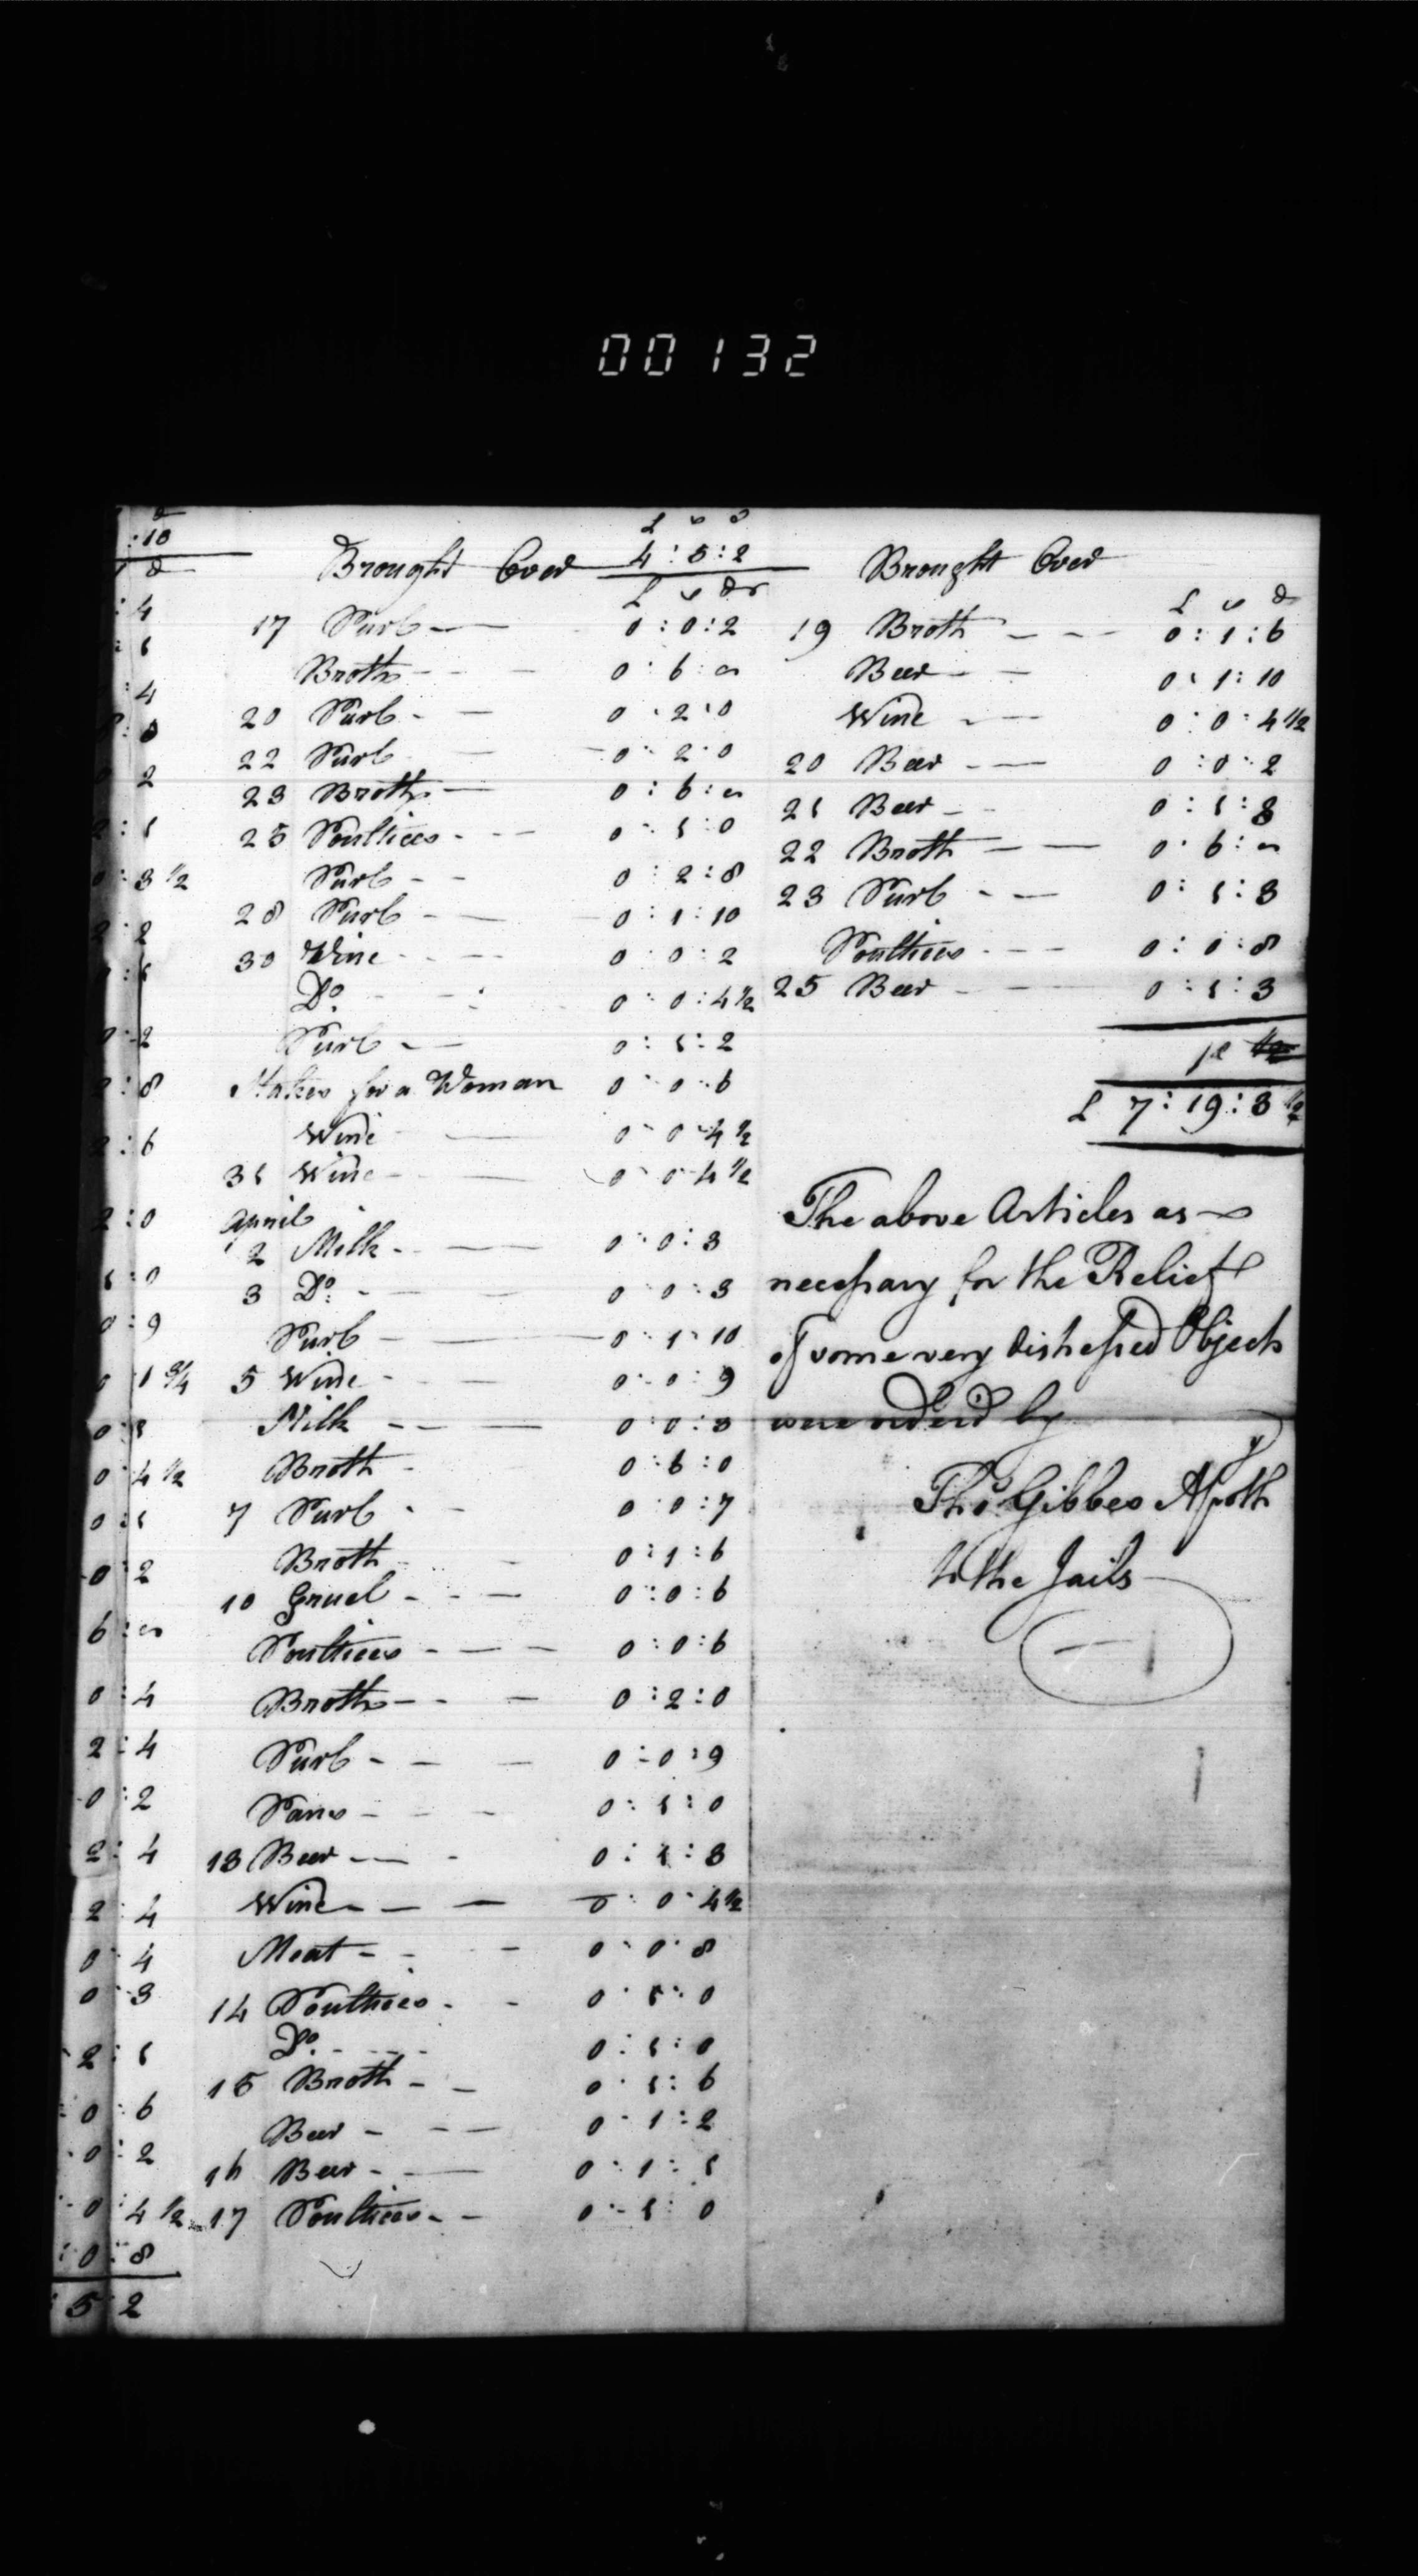 00132
d
:10
d
: 4
: 1
: 4
8 : 0
0 2
2 : 1
0 : 3 1/2
2 : 2
0 : 2
2 : 8
2 : 6
2 : 0
1 : 0
0 : 9
0 1 3/4
0 : 1
0 : 4 1/2
0 : 1
0 : 2
6 : "
0 : 4
2 : 4
0 : 2
2 : 4
2 : 4
0 : 4
0 : 3
2 : 1
0 : 6
0 : 2
0 : 4 1/2
: 0 : 8
: 5 : 2
£ s d
Brought Over 4 : 5 : 2
£ s d
17 Purl 0 : 0 : 2
Broth 0 : 6 : "
20 Purl 0 : 2 : 0
22 Purl 0 : 2 : 0
23 Broth 0 : 6 : "
25 Poultices 0 : 1 : 0
Purl 0 : 2 : 8
28 Purl 0 : 1 : 10
30 Wine 0 : 0 : 2
Do. 0 : 0 : 4 1/2
Purl 0 : 1 : 2
for a Woman 0 : 0 : 6
Wine 0 : 0 : 4 1/2
31 Wine 0 : 0 : 4 1/2
April
2 Milk 0 : 0 : 3
3 Do: 0 : 0 : 3
Purl 0 : 1 : 10
5 Wine 0 : 0 : 9
Milk 0 : 0 : 3
Broth 0 : 6 : 0
7 Purl 0 : 0 : 7
Broth 0 : 1 : 6
10 Gruel 0 : 0 : 6
Poultices 0 : 0 : 6
Broth 0 : 2 : 0
Purl 0 : 0 : 9
Pans 0 : 1 : 0
13 Beer 0 : 1 : 3
Wine 0 : 0 : 4 1/2
Meat 0 : 0 : 8
14 Poultices 0 : 1 : 0
Do. 0 : 1 : 0
15 Broth 0 : 1 : 6
Beer 0 : 1 : 2
16 Beer 0 : 1 : 1
17 Poultices 0 : 1 : 0
Brought Over
£ s d
19 Broth 0 : 1 : 6
Beer 0 : 1 : 10
Wine 0 : 0 : 4 1/2
20 Beer 0 : 0 : 2
21 Beer 0 : 1 : 3
22 Broth 0 : 6 : "
23 Purl 0 : 1 : 3
Poultices 0 : 0 : 8
25 Beer 0 : 1 : 3
£ 7 : 19 : 3 1/2
The above Articles as
necessary for the Relief
of some very distressed Objects
were order'd by
Tho Gibbes Apothy
to the Jails